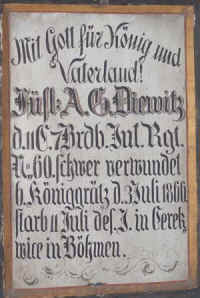 Mit Gott für König und
Vaterland!
Füsl. A. G. Diewitz
d. 11 C. 7 Brdb. Inf. Rgt.
No 60. schwer verwundet
b. Königgrätz d. 3 Juli 1866,
starb 11 Juli des. J. in Cerek
wice in Böhmen.